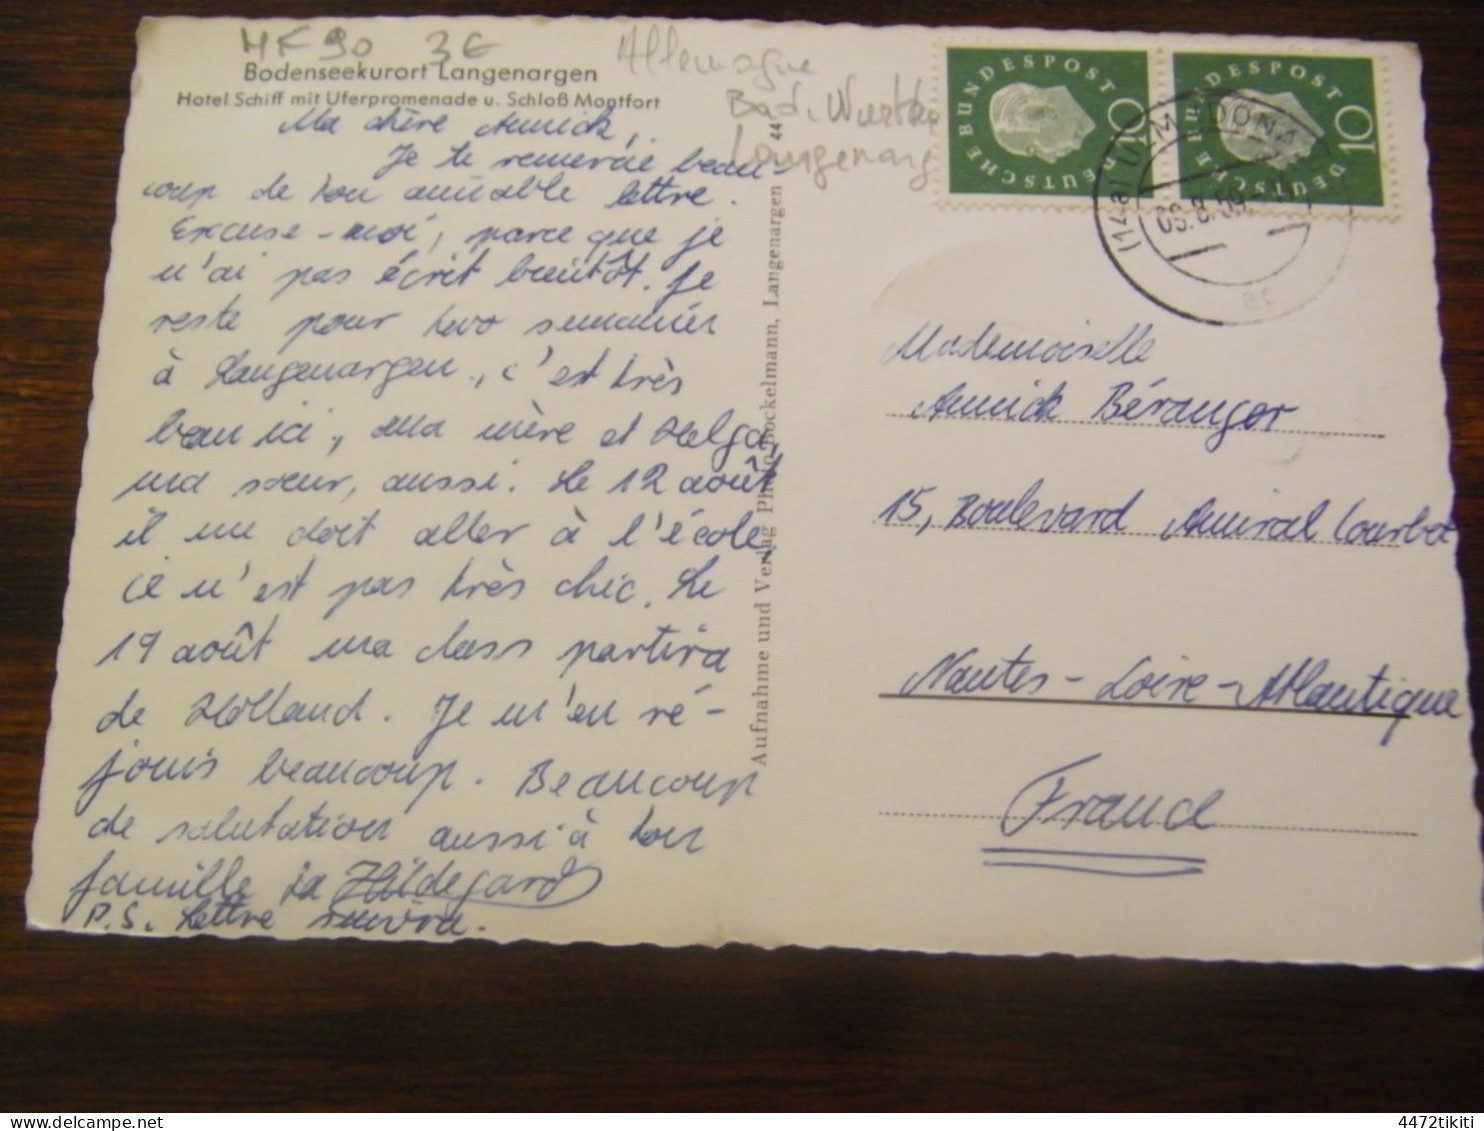 HF90 3€
Bodenseekurort Langenargen
Hotel Schiff mit Uferpromenade u. Schloß Montfort
Allemagne
Bad. Wurtt
Langenarg
Ma chère Annick,
Je te remercie beau-
coup de ton aimable lettre.
Excuse-moi, parce que je
n'ai pas écrit bientôt. Je
reste pour two semanier
à Langenargen, c'est très
beau ici, ma mère et Helga,
ma sœur, aussi. Le 12 août
il me doit aller à l'école,
ce n'est pas très chic. Le
19 août ma class partira
de Holland. Je m'en ré-
jouis beaucoup. Beaucoup
de salutation aussi à ton
famille ta Hildegard
P.S. Lettre suivra.
Aufnahme und Verlag Photo-Bockelmann, Langenargen 44
DEUTSCHE BUNDESPOST 10
DEUTSCHE BUNDESPOST 10
(14a) ULM (DONAU)
09.8.59
Mademoiselle
Annick Béranger
15, Boulevard Amiral Courbet
Nantes-Loire-Atlantique
France
4472tikiti